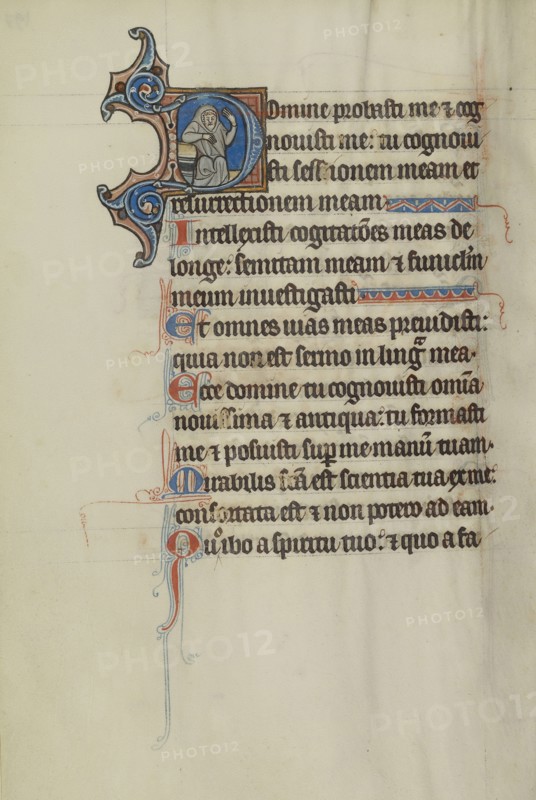 Domine probasti me ⁊ cog
nouisti me: tu cognoui
sti sessionem meam et
resurrectionem meam.
Intellexisti cogitatões meas de
longe: semitam meam ⁊ funiclm̄
meum inuestigasti
Et omnes uias meas preuidisti:
quia non est sermo in lingᵃ mea.
Ecce domine tu cognouisti om̄ia
nouissima ⁊ antiqua: tu formasti
me ⁊ posuisti sup̱ me manū tuam.
Mirabilis fc̄a est scientia tua ex me:
confortata est ⁊ non potero ad eam.
Quͦ ibo a spiritu tuo: ⁊ quo a fa
PHOTO12